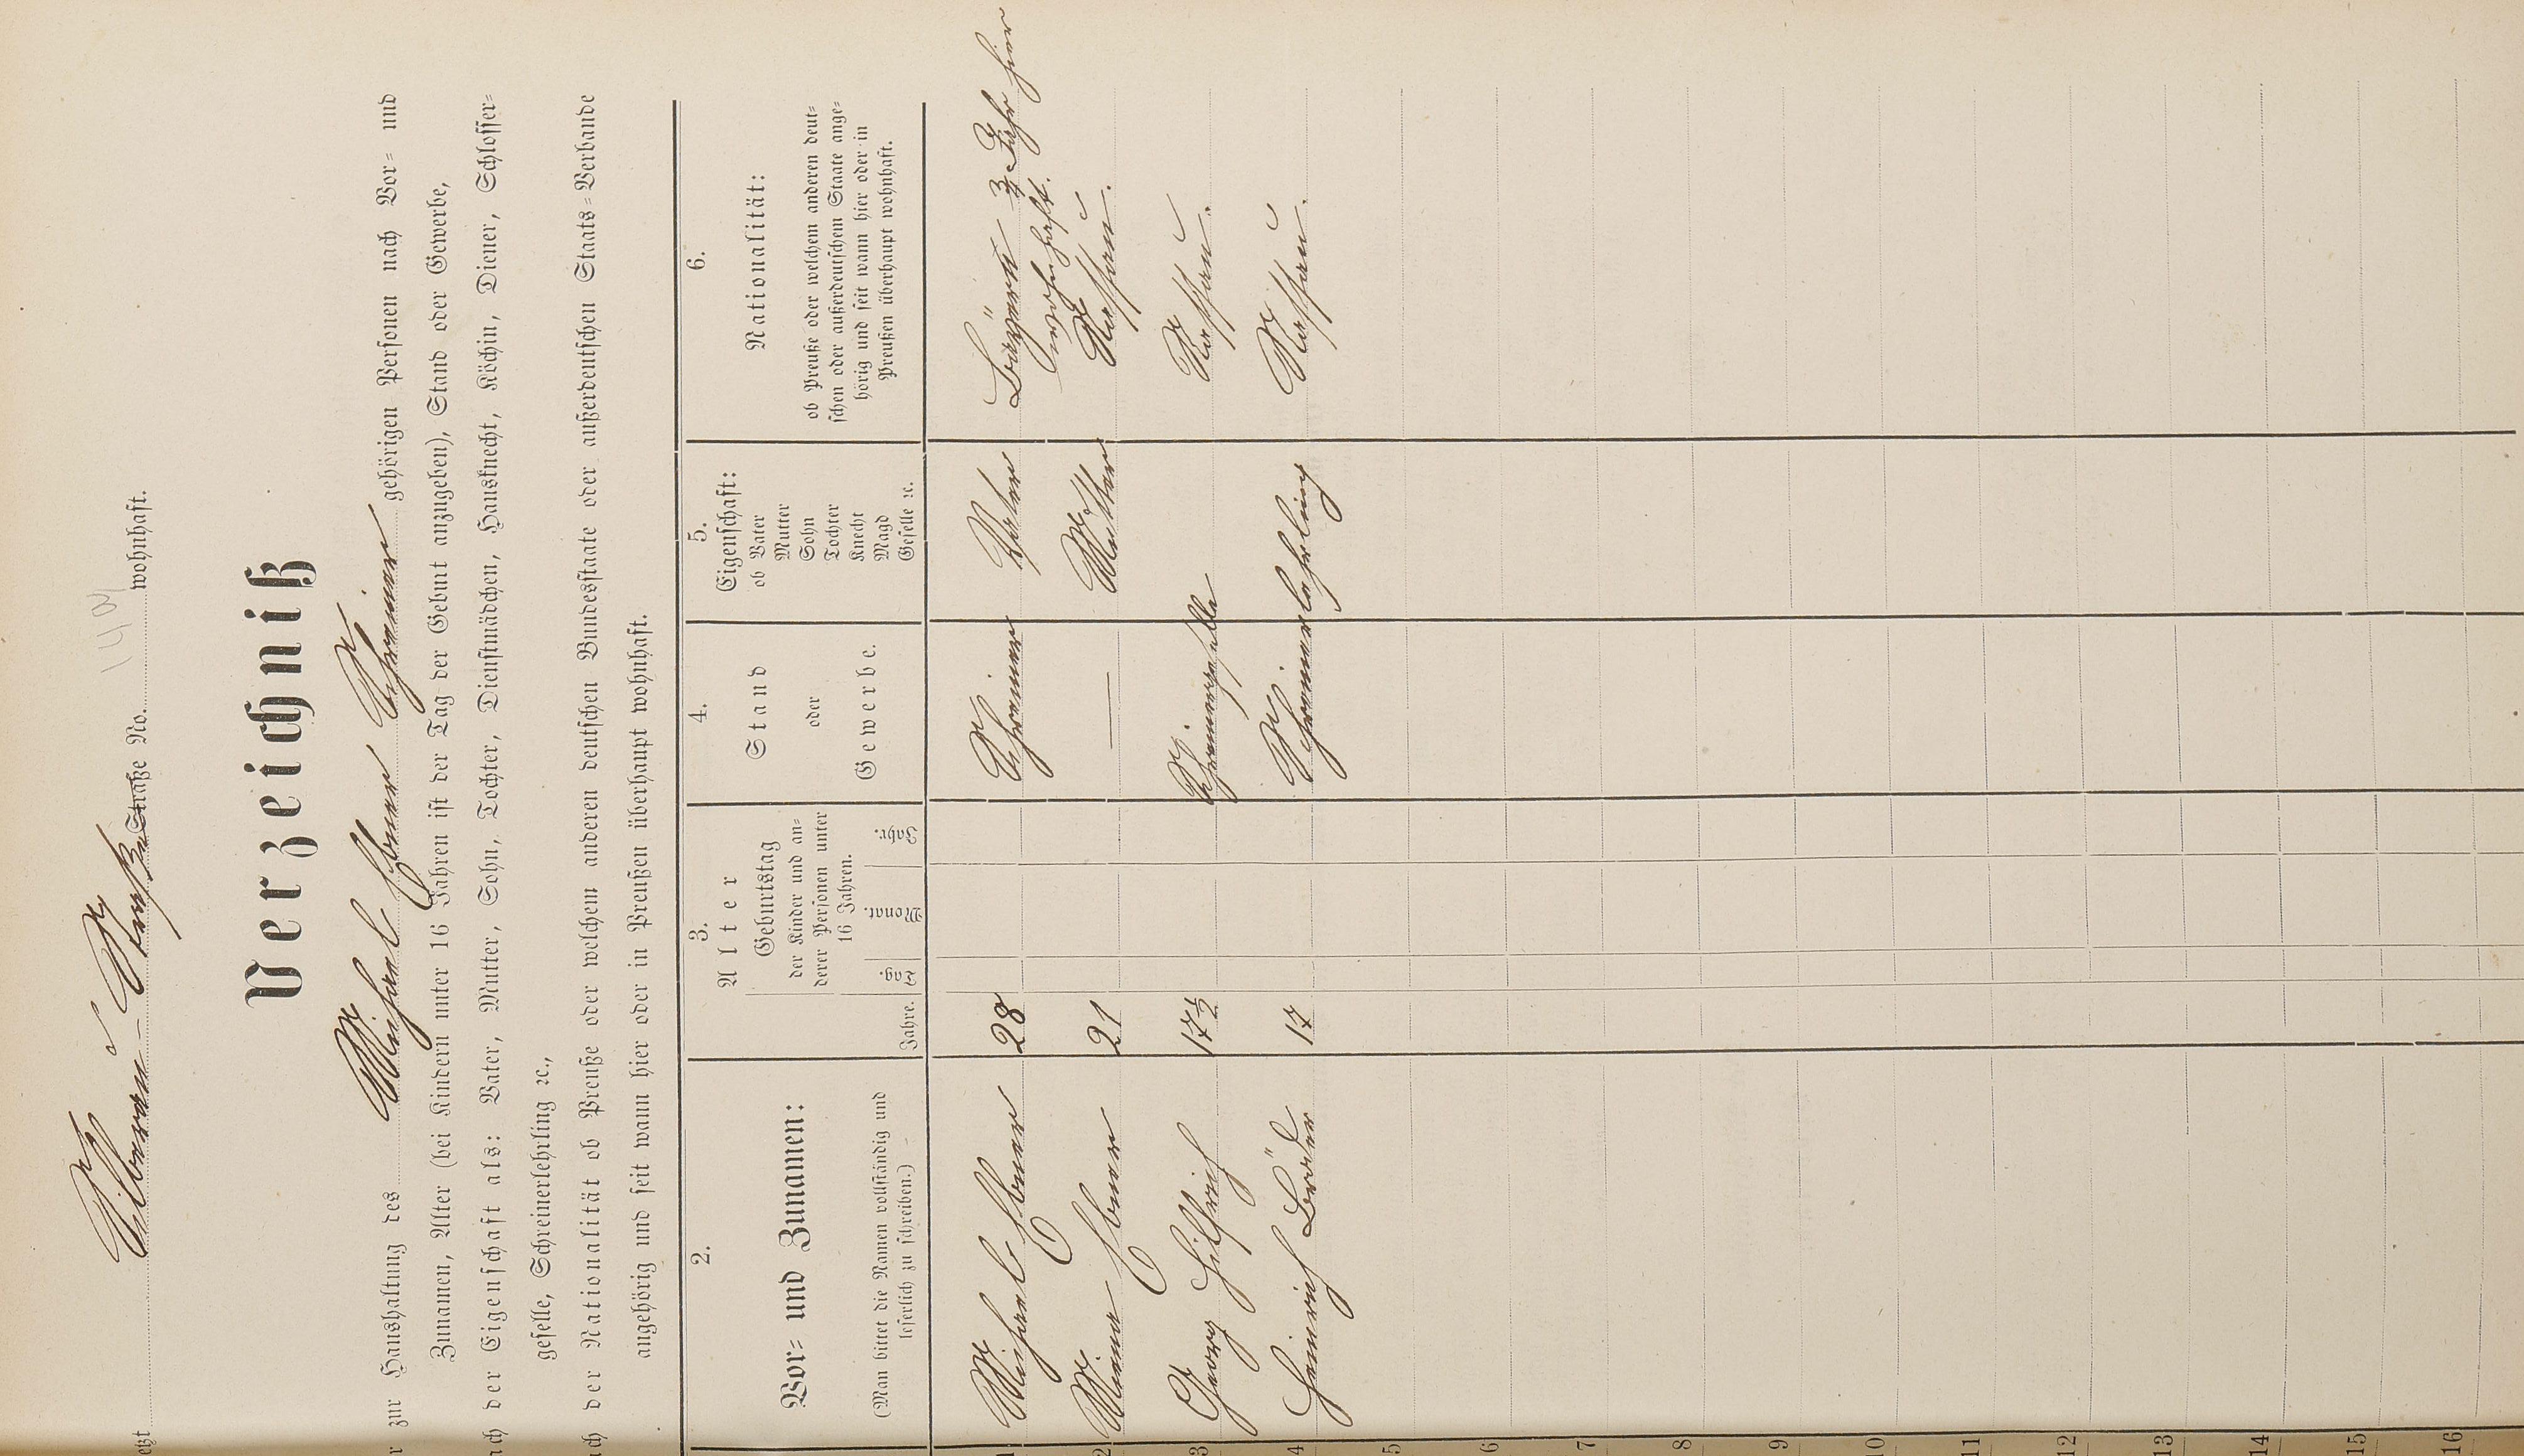 etzt Silberau-Straße Straße No. 1404 wohnhaft.
Verzeichniß
r zur Haushaltung des Michael Ebner Schreiner gehörigen Personen nach Vor- und
Zunamen, Alter (bei Kindern unter 16 Jahren ist der Tag der Geburt anzugeben), Stand oder Gewerbe,
ch der Eigenschaft als: Vater, Mutter, Sohn, Tochter, Dienstmädchen, Hausknecht, Köchin, Diener, Schlosser-
geselle, Schreinerlehrling ꝛc.,
ch der Nationalität ob Preuße oder welchem anderen deutschen Bundesstaate oder außerdeutschen Staats-Verbande
angehörig und seit wann hier oder in Preußen überhaupt wohnhaft.
2.
Vor- und Zunamen:
(Man bittet die Namen vollständig und
leserlich zu schreiben.)
3.
Alter
Jahre.
Geburtstag
der Kinder und an-
derer Personen unter
16 Jahren.
Tag. Monat. Jahr.
4.
Stand
oder
Gewerbe.
5.
Eigenschaft:
ob Vater
Mutter
Sohn
Tochter
Knecht
Magd
Geselle ꝛc.
6.
Nationalität:
ob Preuße oder welchem anderen deut-
schen oder außerdeutschen Staate ange-
hörig und seit wann hier oder in
Preußen überhaupt wohnhaft.
1 Michael Ebner 28 Schreiner Vater Bayern ¾ Jahr hier
wohnhaft.
2 Miena Ebner 21 — Mutter Nassau.
3 Georg Hilfrich 17½ Schreinergeselle Nassau.
4 Heinrich Bröder 17 Schreinerlehrling Nassau.
5
6
7
8
9
10
11
12
13
14
15
16